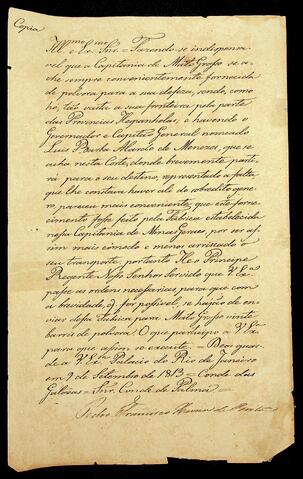 Copia
Ill.mo e Ex.mo Snr. = Fazendo-se indispensa-
vel que a Capitania de Mato Grosso se a-
che sempre convenientemente fornecida
de polvora para a sua defeza, sendo, como
he, tão vasta a sua fronteira pela parte
das Provincias Hespanholas; e havendo o
Governador e Capitão General nomeado
Luis Barba Alardo de Menezes, que se
acha nesta Corte, donde brevemente parti-
rá para o seu destino, representado a falta,
que lhe constava haver ali do sobredito gene-
ro, pareceu mais conveniente, que este forne-
cimento fosse feito pela Fabrica estabelecida
nessa Capitania de Minas Geraes, por ser assim
mais comodo e menos arriscado o
seu transporte, portanto He o Principe
Regente Nosso Senhor Servido que V Ex.a
passe as ordens necessarias para que com
a brevidade, q. for possivel, se hajão de en-
viar dessa Fabrica para Mato Grosso vinte
barris de polvora. O que participo a V Ex.a
para que assim se execute. = Deos guar-
de a V Ex.a Palacio do Rio de Janeiro
em 9 de Setembro de 1813 = Conde das
Galvêas = Snr. Conde de Palma =
Francisco